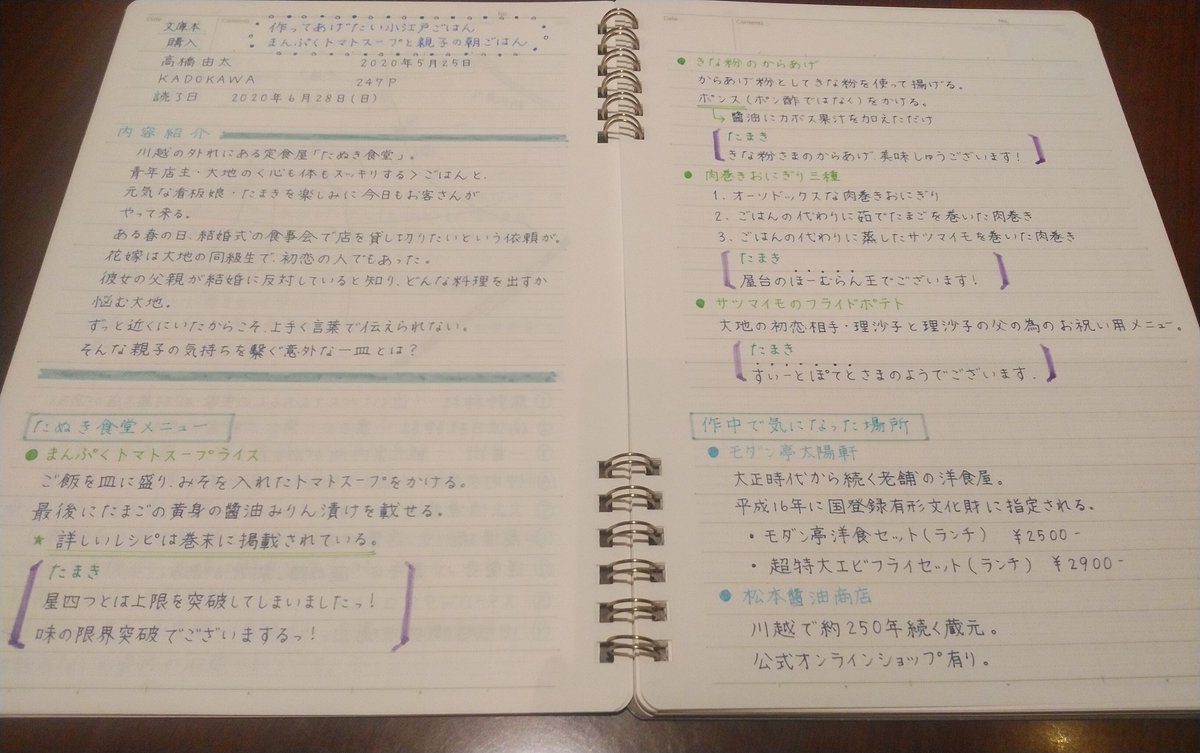 文庫本
購入
作ってあげたい小江戸ごはん
まんぷくトマトスープと親子の朝ごはん
高橋由太 2020年5月25日
KADOKAWA 247P
読了日 2020年6月28日(日)
内容紹介
川越の外れにある定食屋「たぬき食堂」。
青年店主・大地のく心も体もスッキリする〉ごはんと、
元気な看板娘・たまきを楽しみに今日もお客さんが
やって来る。
ある春の日、結婚式の食事会で店を貸し切りたいという依頼が。
花嫁は大地の同級生で、初恋の人でもあった。
彼女の父親が結婚に反対していると知り、どんな料理を出すか
悩む大地。
ずっと近くにいたからこそ、上手く言葉で伝えられない。
そんな親子の気持ちを繋ぐ意外な一皿とは?
たぬき食堂メニュー
● まんぷくトマトスープライス
ご飯を皿に盛り、みそを入れたトマトスープをかける。
最後にたまごの黄身の醬油みりん漬けを載せる。
★ 詳しいレシピは巻末に掲載されている。
たまき
星四つとは上限を突破してしまいましたっ!
味の限界突破でございまするっ!
Date Contents No.
● きな粉のからあげ
からあげ粉としてきな粉を使って揚げる。
ポンス(ポン酢ではなく)をかける。
↳ 醬油にカボス果汁を加えただけ
たまき
きな粉さまのからあげ、美味しゅうございます!
● 肉巻きおにぎり三種
1. オーソドックスな肉巻きおにぎり
2. ごはんの代わりに茹でたまごを巻いた肉巻き
3. ごはんの代わりに蒸したサツマイモを巻いた肉巻き
たまき
屋台のほーむらん王でございます!
● サツマイモのフライドポテト
大地の初恋相手・理沙子と理沙子の父の為のお祝い用メニュー。
たまき
すいーとぽてとさまのようでございます.
作中で気になった場所
● モダン亭太陽軒
大正時代から続く老舗の洋食屋。
平成16年に国登録有形文化財に指定される。
・モダン亭洋食セット(ランチ) ¥2500-
・超特大エビフライセット(ランチ) ¥2900-
● 松本醬油商店
川越で約250年続く蔵元。
公式オンラインショップ有り。